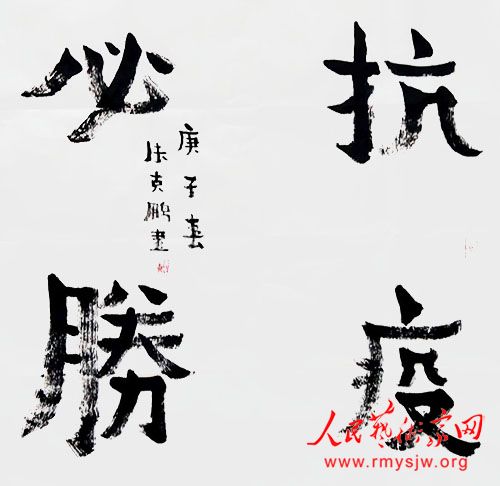 抗疫
必勝
庚子春
克鹏書
人民艺术家网
www.rmysjw.org